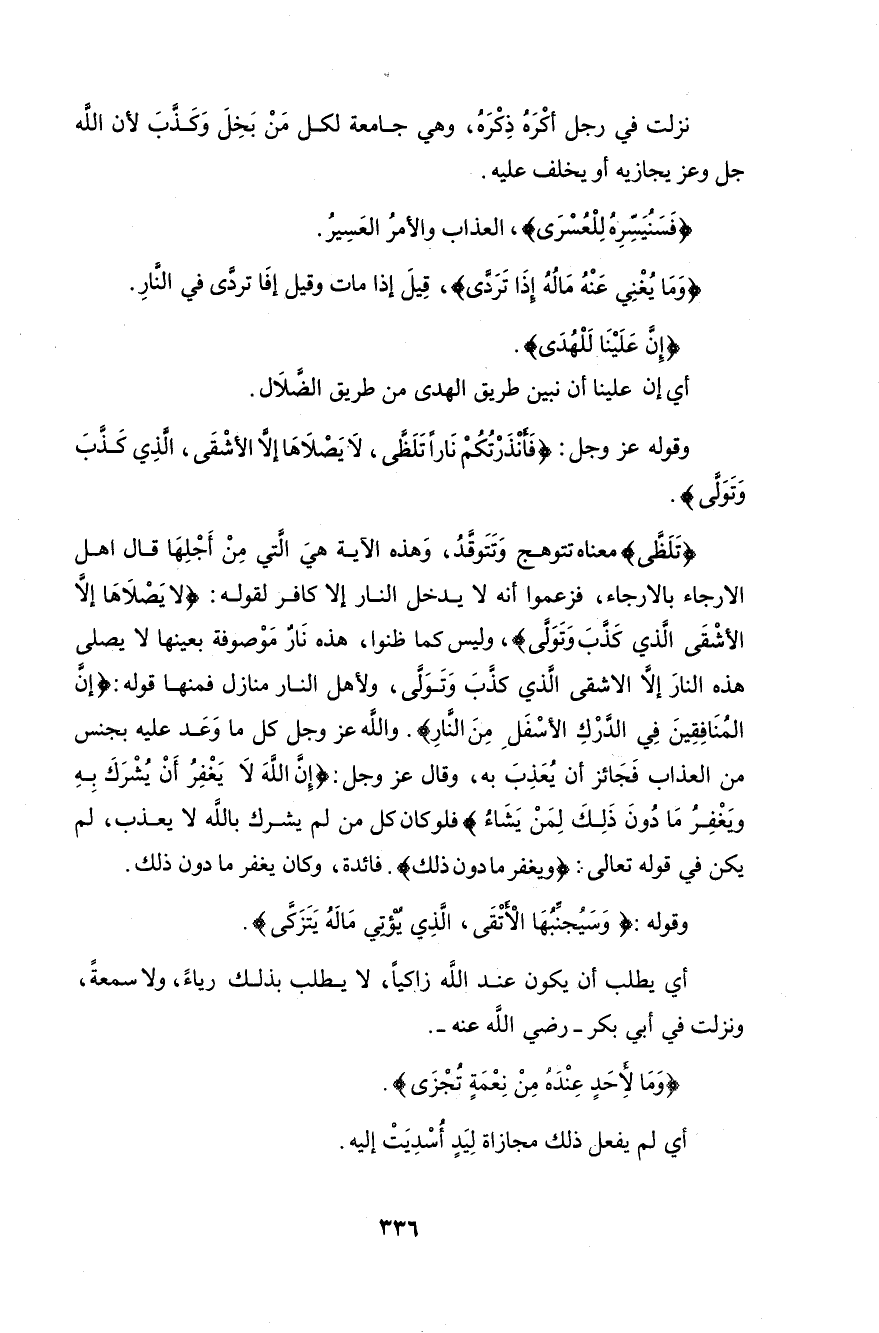 نزلت في رجل أكْرَهُ ذِكْرَهُ، وهي جـامعة لكـل مَنْ بَخِلَ وَكَـذَّبَ لأن اللَّه
جل وعز يجازيه أو يخلف عليه.
﴿فَسَنُيَسِّرِهُ لِلْعُسْرَى﴾، العذاب والأمرُ العَسِيرُ.
﴿وَمَا يُغْنِي عَنْهُ مَالُهُ إِذَا تَرَدَّى﴾، قِيلَ إذا مات وقيل إفَا تردَّى في النَّارِ.
﴿إِنَّ عَلَيْنَا لَلْهُدَى﴾.
أي إن علينا أن نبين طريق الهدى من طريق الضَّلَال.
وقوله عز وجل: ﴿فَأَنْذَرْتُكُمْ نَاراً تَلَظَّى، لَا يَصْلَاهَا إلَّا الأشْقَى، الَّذِي كَـذَّبَ
وَتَوَلَّى﴾.
﴿تَلَظَّى﴾ معناه تتوهج وَتَتَوقَّدُ، وَهذه الآيـة هيَ الَّتي مِنْ أَجْلِهَا قـال اهـل
الارجاء بالارجاء، فزعموا أنه لا يـدخل النـار إلا كافـر لقولـه: ﴿لا يَصْلَاهَا إلَّا
الأشْقَى الَّذي كَذَّبَ وَتَوَلَّى﴾، وليس كما ظنوا، هذه نَارٌ مَوْصوفة بعينها لا يصلى
هذه النارَ إلَّا الاشقى الَّذي كذَّبَ وَتَـوَلَّى، ولأهل النـار منازل فمنهـا قوله:﴿إنَّ
المُنَافِقِينَ فِي الدَّرْكِ الأسْفَلِ مِنَ النَّارِ﴾. واللَّه عز وجل كل ما وَعَـد عليه بجنس
من العذاب فَجَائز أن يُعَذِبَ به، وقال عز وجل:﴿إنَّ اللَّهَ لَا يَغْفِرُ أَنْ يُشْرَكَ بِـهِ
ويَغْفِـرُ مَا دُونَ ذَلِـكَ لِمَنْ يَشَاءُ ﴾ فلو كان كل من لم يشـرك باللَّه لا يعـذب، لم
يكن في قوله تعالى: ﴿ويغفر ما دون ذلك﴾. فائدة، وكان يغفر ما دون ذلك.
وقوله :﴿ وَسَيُجنَّبُهَا الْأَتْقَى، الَّذِي يُؤْتِي مَالَهُ يَتَزَكَّى﴾.
أي يطلب أن يكون عنـد اللَّه زاكياً، لا يـطلب بذلـك رياءً، ولا سمعةً،
ونزلت في أبي بكر ـ رضي اللَّه عنه ـ.
﴿وَمَا لَأِحَدٍ عِنْدَهُ مِنْ نِعْمَةٍ تُجْزَى﴾.
أي لم يفعل ذلك مجازاة لِيَدٍ أُسْدِيَتْ إليه.
٣٣٦